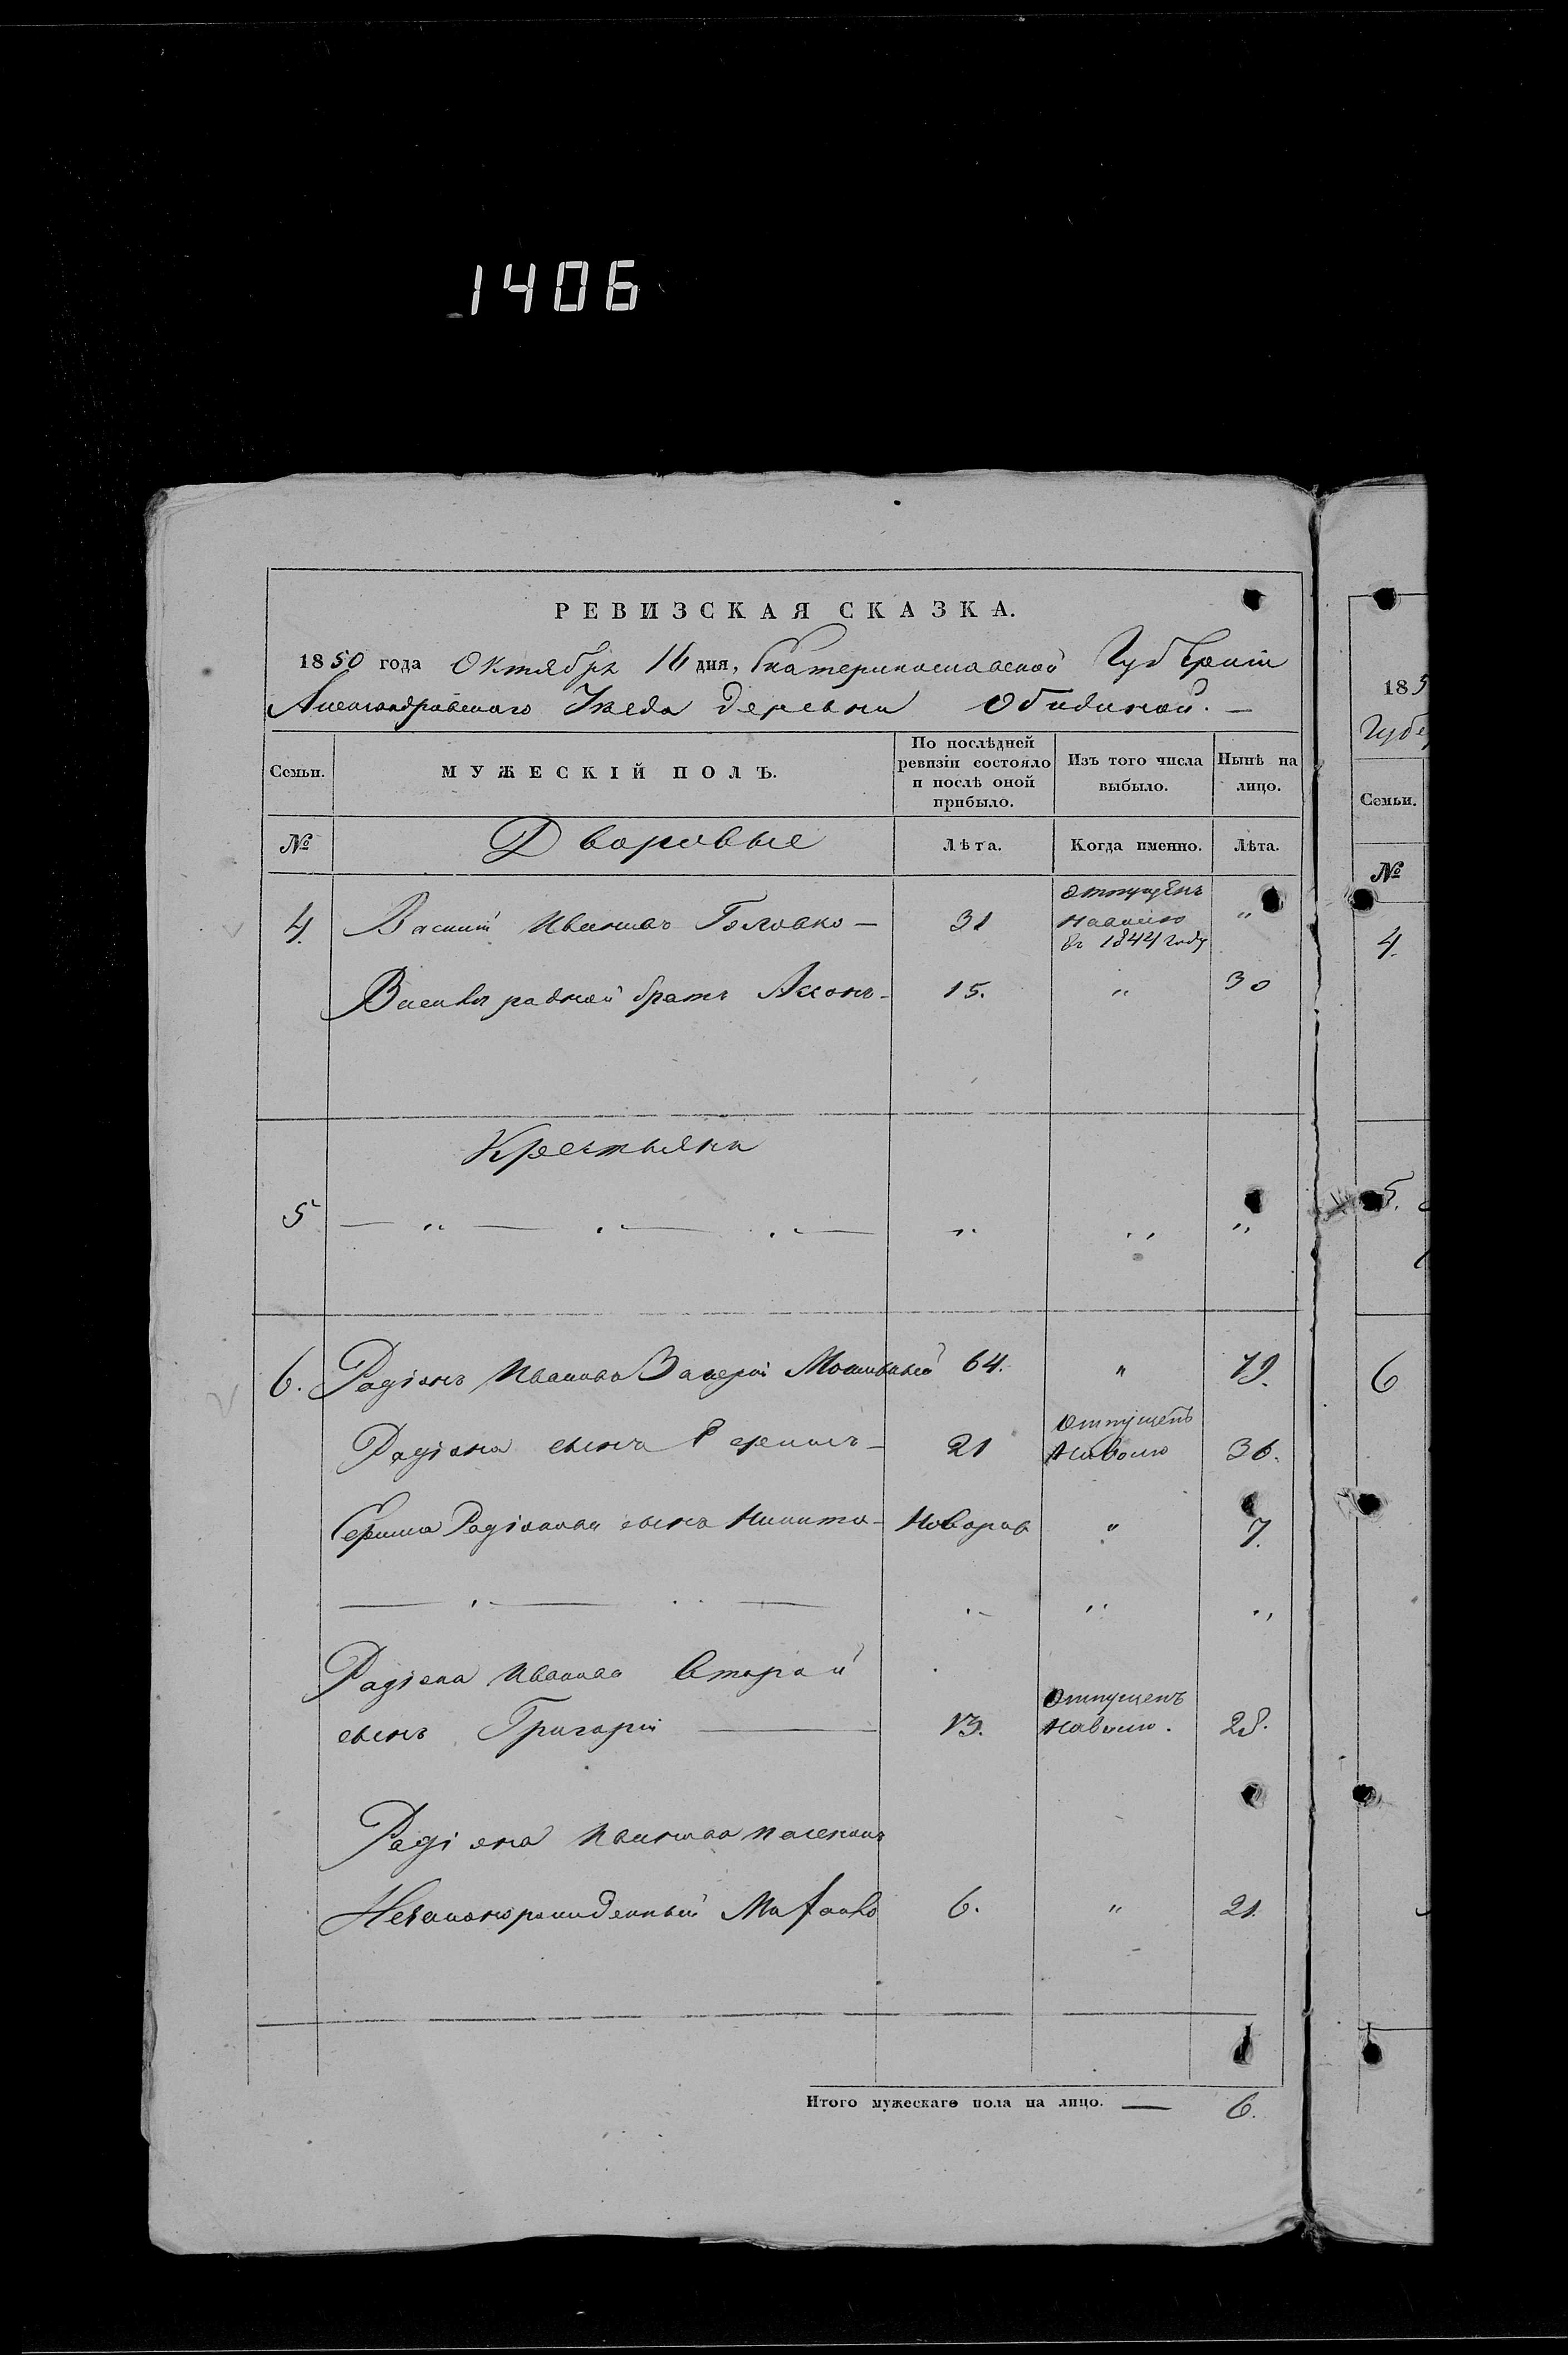 1406
РЕВИЗСКАЯ СКАЗКА.
1850 года Октября 16 дня, Екатеринославской Губернiи
Александровскаго Уезда деревни Обидиной. —
Семьи. МУЖЕСКIЙ ПОЛЪ. По послѣдней ревизiи состояло и послѣ оной прибыло. Изъ того числа выбыло. Нынѣ на лицо.
№ Дворовые Лѣта. Когда именно. Лѣта.
4. Василiй Ивановъ Головко — 31 отпущенъ наволю въ 1844 году "
родной братъ 15. " 30
Крестьяне
5 — " — " — " — " " "
6. Радiонъ Ивановъ 64. " 79.
Радiона сынъ 21 отпущенъ наволю 36.
Радiонова сынъ Никита — Новорож " 7.
— " — " — " " "
Радiона Иванова второй
сынъ Григорiй — 13. Отпущенъ наволю. 28.
Радiона Иванова
Незаконорожденный 6. " 21.
Итого мужескаго пола на лицо. — 6.
185
Губе
Семьи.
№
4.
5.
6